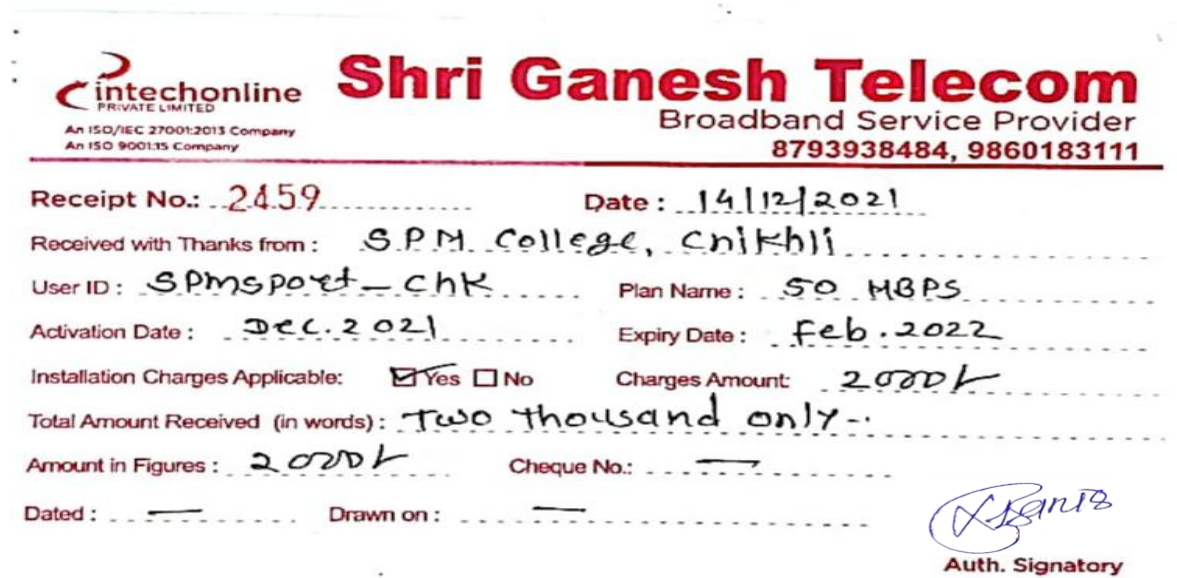 intechonline
PRIVATE LIMITED
An ISO/IEC 27001:2013 Company
An ISO 9001:15 Company
Shri Ganesh Telecom
Broadband Service Provider
8793938484, 9860183111
Receipt No.: 2459 Date : 14/12/2021
Received with Thanks from : S.P.M. College, Chikhli
User ID : SPMsport-Chk Plan Name : 50 MBPS
Activation Date : Dec. 2021 Expiry Date : Feb. 2022
Installation Charges Applicable: ☑ Yes ☐ No Charges Amount: 2000/-
Total Amount Received (in words) : Two thousand only-
Amount in Figures : 2000/- Cheque No.: —
Dated : — Drawn on : —
Auth. Signatory